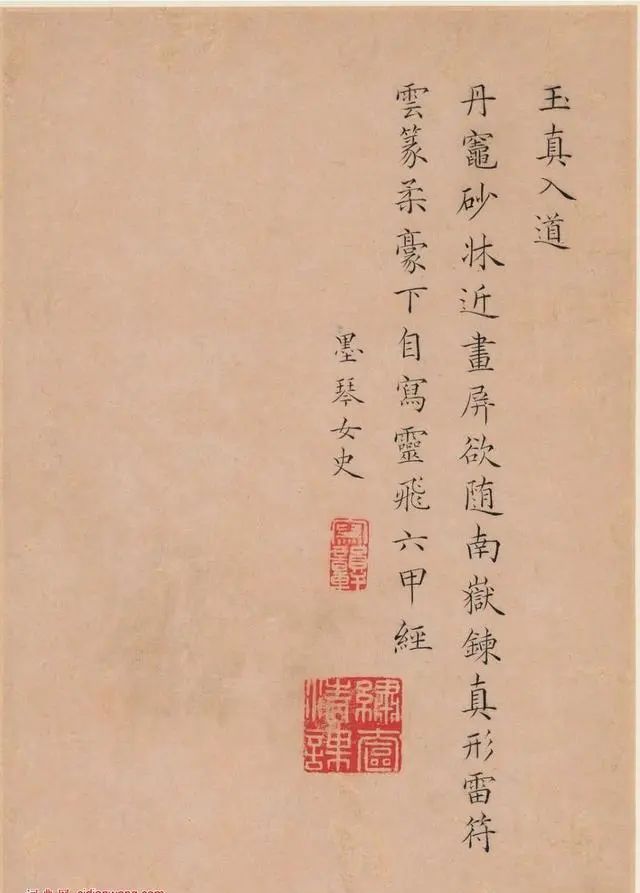 玉真入道
丹竈砂牀近畫屏欲随南嶽鍊真形雷符
雲篆柔豪下自寫靈飛六甲經
墨琴女史
繡窗清課